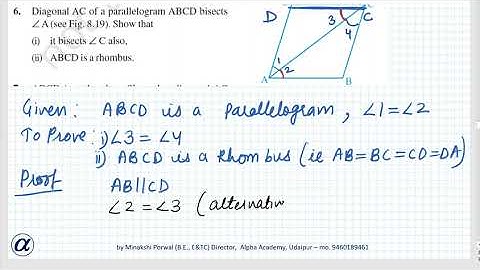 6. Diagonal AC of a parallelogram ABCD bisects
∠A (see Fig. 8.19). Show that
(i) it bisects ∠C also,
(ii) ABCD is a rhombus.
D C
3
4
1
2
A B
Given: ABCD is a parallelogram, ∠1=∠2
To Prove: i) ∠3 = ∠4
ii) ABCD is a Rhombus (ie AB=BC=CD=DA)
Proof
AB||CD
∠2 = ∠3 (alternativ
α by Minakshi Porwal (B.E., E&TC) Director, Alpha Academy, Udaipur – mo. 9460189461